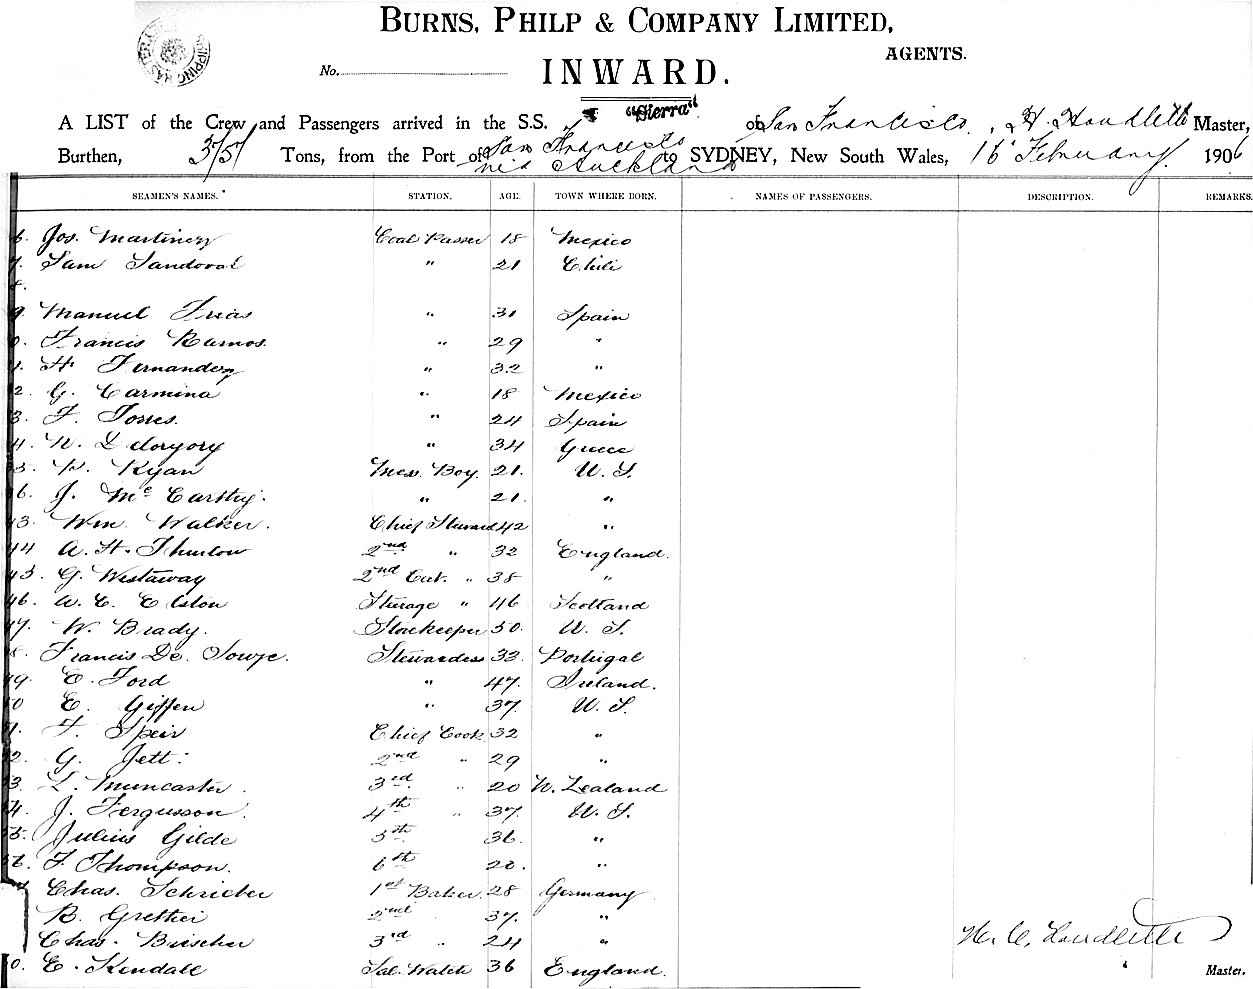 BURNS, PHILP & COMPANY LIMITED,
AGENTS.
No.
INWARD.
A LIST of the Crew and Passengers arrived in the S.S. "Sierra" of San Francisco, H. Houdlette Master,
Burthen, 3751 Tons, from the Port of San Francisco via Auckland to SYDNEY, New South Wales, 16 February 1906
SEAMEN'S NAMES. STATION. AGE. TOWN WHERE BORN. NAMES OF PASSENGERS. DESCRIPTION. REMARKS.
6. Jos. Martinez Coal Passer 18 Mexico
7. Sam Sandoval " 21 Chili
8.
9. Manuel Frias " 31 Spain
0. Francis Ramos. " 29 "
1. H. Fernandez " 32 "
2. G. Carmina " 18 Mexico
3. F. Torres. " 24 Spain
4. N. " 34 Greece
35. P. Ryan Mess Boy. 21. U. S.
36. J. McCarthy. " 21. "
43. Wm. Walker. Chief Steward 42 "
44 A. H. Thurlow 2nd " 32 England.
45. G. Westaway 2nd Cab. " 38 "
46. A. E. Elston Sterage " 46 Scotland
47. W. Brady. Storekeeper 50. U. S.
8. Francis De Sowze. Stewardess 33. Portugal
49. E. Ford " 47. Ireland.
50 E. Giffen " 37. U. S.
51. F. Speir Chief Cook 32 "
52. G. Jett. 2nd " 29 "
53. L. Muncaster. 3rd " 20 N. Zealand
54. J. Fergusson. 4th " 37. U. S.
55. Julius Gilde 5th 36. "
56. F. Thompson. 6th "
Chas. Schrieber 1st Baker. 28 Germany
B. Grether 2nd 37. "
Chas. Buischer 3rd " 24 "
H. C. Houdlette
0. E. Kendall Sal. Watch 36 England.
Master.